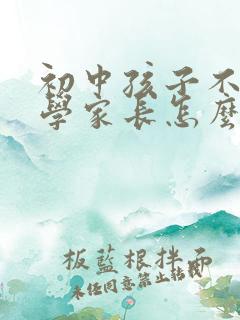 初中孩子不
學家長怎麼
板藍根拌面
未任同意禁止轉載